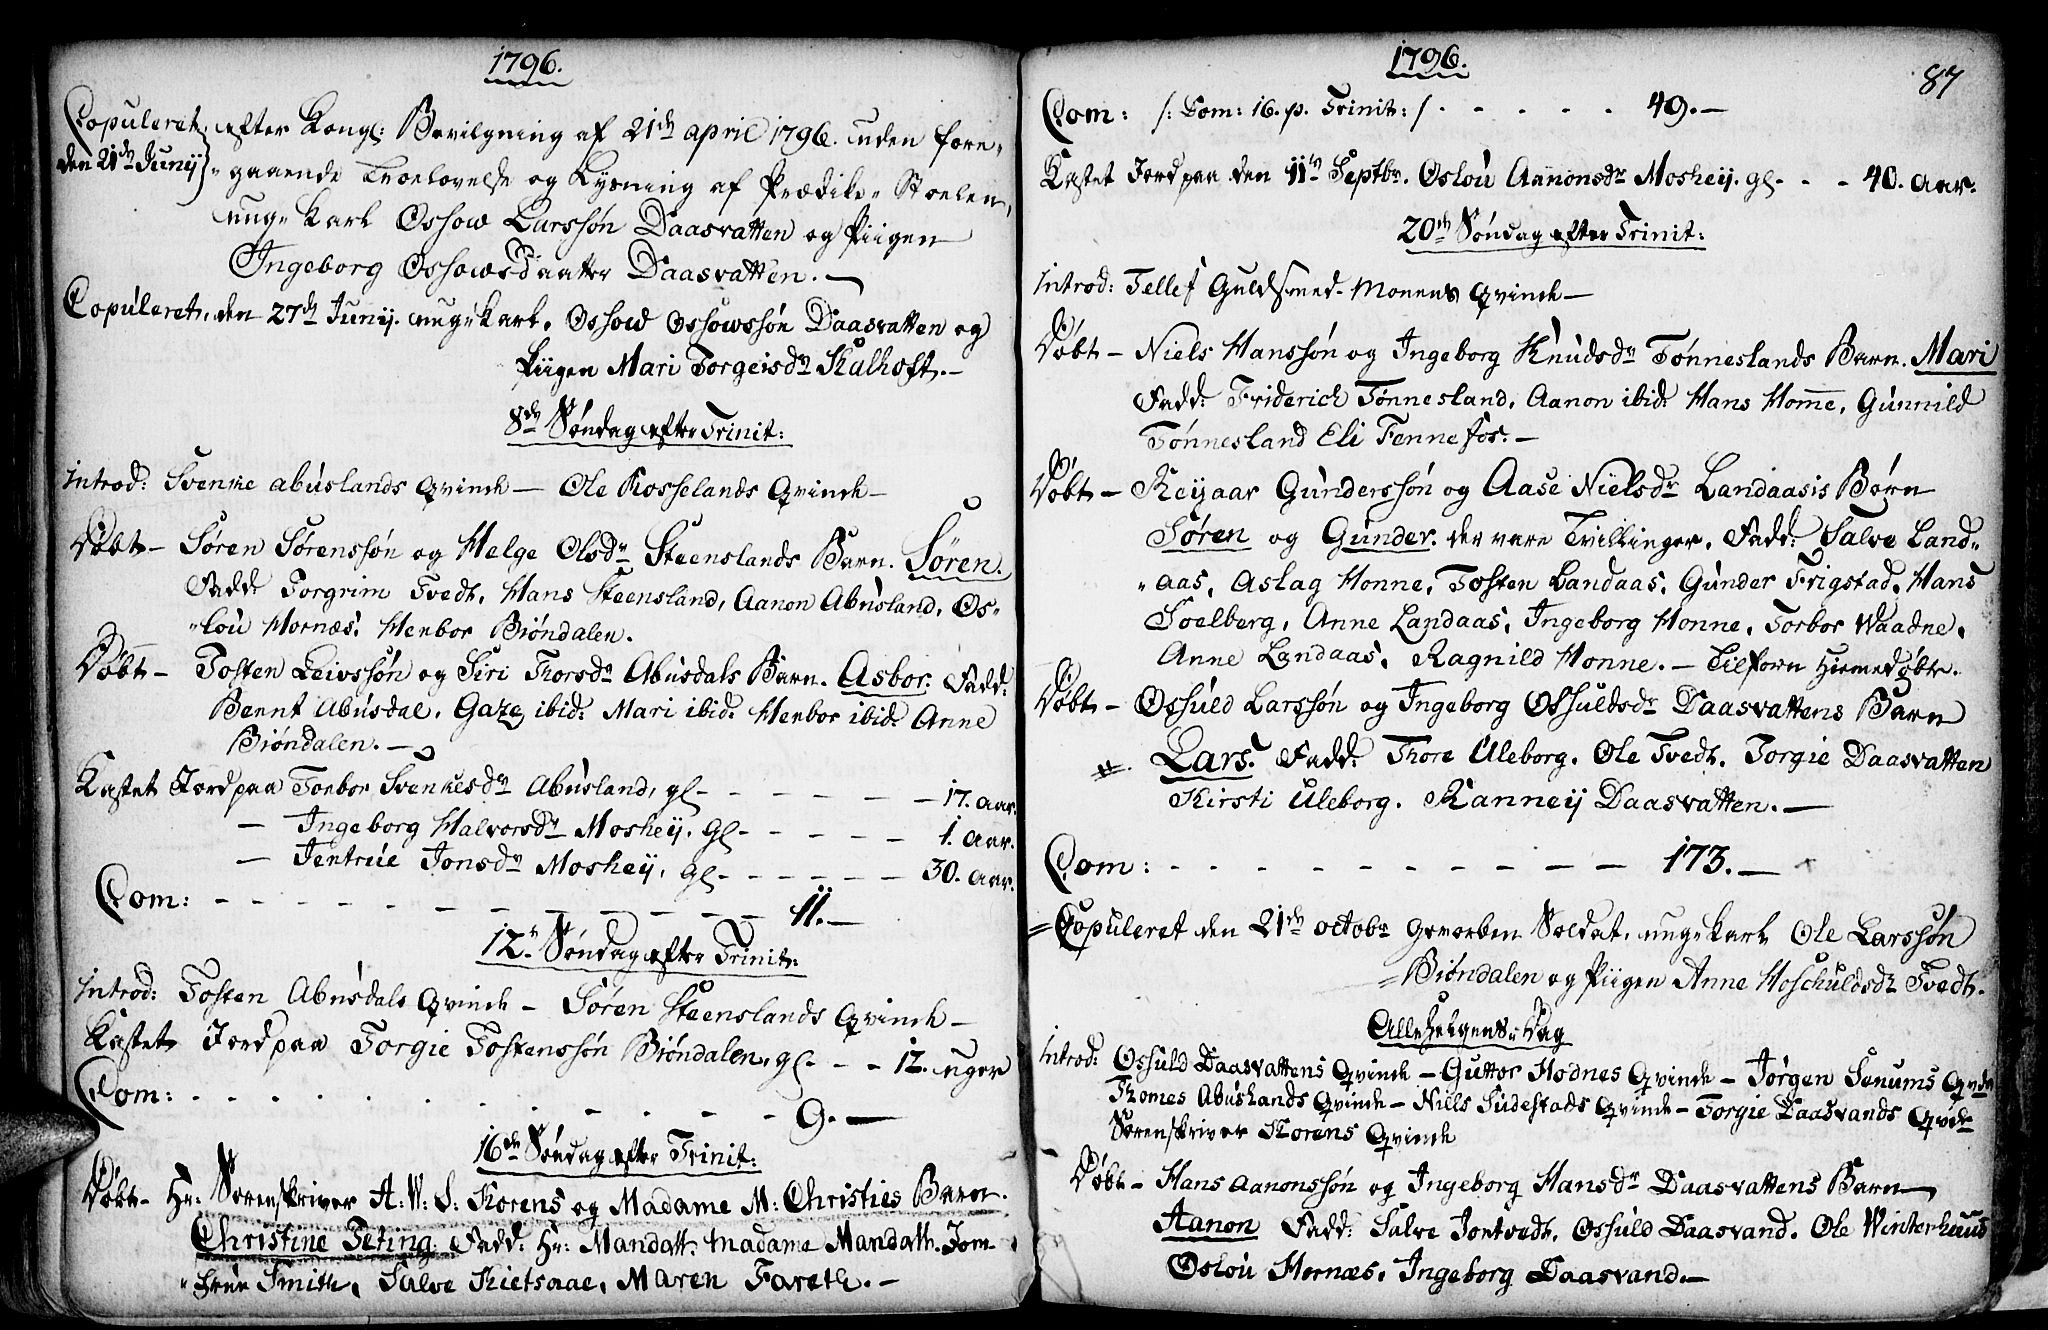 1796.
Copuleret, efter Kongl: Bevilgning af 21de april 1796. uden fore-
den 21de Junij} -gaaende Troelovelse og Lysning af Prædike-Stoelen,
unge Karl Ossow Larssøn Daasvatten og Piigen
Ingeborg Ossowsdaatter Daasvatten. —
Copuleret, den 27de Junij. unge Karl. Ossow Ossowssøn Daasvatten og
Piigen Mari Torgeisdr Kulhoft. —
8de Søndag efter Trinit:
Introd: Svenke abuslands Qvinde — Ole Rosselands Qvinde —
Døbt — Søren Sørenssøn og Helge Olsdr Steenslands Barn. Søren.
Fadd: Torgrim Tvedt, Hans Steensland, Aanon Abusland, Os-
-lou Hornæs, Henbor Biøndalen.
Døbt — Tosten Leivssøn og Siri Thorsdr Abusdals Barn. Asbor. Fadd:
Bernt Abusdal. Gaze ibid: Mari ibid: Henbor ibid: Anne
Biøndalen. —
Kastet Jord paa Torbor Svenkesdr Abusland, gl - - - - - - 17. aar.
— Ingeborg Halvorsdr Mosheÿ. gl - - - - - 1. aar.
— Jentrue Jonsdr Moshey, gl - - - - - - 30. aar.
Com: - - - - - - - - - - - - 11. —
12te Søndag efter Trinit:
Introd: Tosten Abusdals Qvinde — Søren Steenslands Qvinde —
Kastet Jord paa Torgie Tostenssøn Biøndalen, gl - - - 12. uger
Com: - - - - - - - - - - - 9. —
16de Søndag efter Trinit:
Døbt — Hr: Sorenskriver A: W: S: Korens og Madame M: Christies Barn.
Christine Teting. Fadd: Hr: Mandatt. madame Mandath. Jom-
-frue Smith, Salve Kietsaae, Maren Fareth. —
1796.
87
Com: /: Dom: 16. p. Trinit: / - - - - - 49. —
Kastet Jord paa den 11te Septbr. Oslou Aanonsdr Moshey. gl - - - 40. Aar.
20de Søndag efter Trinit:
Introd: Tellef Guldsmed-Monens Qvinde —
Døbt — Niels Hanssøn og Ingeborg Knudsdr Tønneslands Barn. Mari
Fadd: Friderich Tønnesland, Aanon ibid: Hans Homme, Gunnild
Tønnesland Eli Fennefos. —
Døbt — Reijaar Gunderssøn og Aase Nielsdr Landaasis Børn
Søren og Gunder. der vare Tvillinger. Fadd: Salve Land-
-aas, Aslag Honne, Tosten Landaas, Gunder Frigstad, Hans
Soelberg, Anne Landaas, Ingeborg Honne, Torbor Waadne,
Anne Landaas, Ragnild Honne. — Tilforn Hiemedøbte.
Døbt — Ossuld Larssøn og Ingeborg Ossuldsdr Daasvattens Barn
#. Lars. Fadd: Thore Uleborg. Ole Tvedt. Torgie Daasvatten
Kirsti Uleborg. Ranneij Daasvatten. —
Com: - - - - - - - - - - - 173. —
Copuleret den 21de octobr Gevorben Soldat, unge Karl Ole Larssøn
Biøndalen og Piigen Anne Hoschuldsdr Tvedt.
Allehelgens-Dag
Introd: Ossuld Daasvattens Qvinde — Guttor Hodnes Qvinde — Jørgen Senums Qvde
Thomes Abuslands Qvinde — Niels Sudestads Qvinde — Torgie Daasvands Qvde
Sorenskriver Korens Qvinde
Døbt — Hans Aanonssøn og Ingeborg Hansdr Daasvattens Barn
Aanon Fadd: Salve Jortvedt, Ossuld Daasvand. Ole Winterhuus
Oslou Hornæs, Ingeborg Daasvand. —